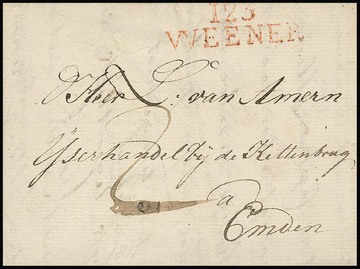 123
WEENER
d'Heer L: van Amern
Yserhandel bij de Kettenbrug
3
a
Emden